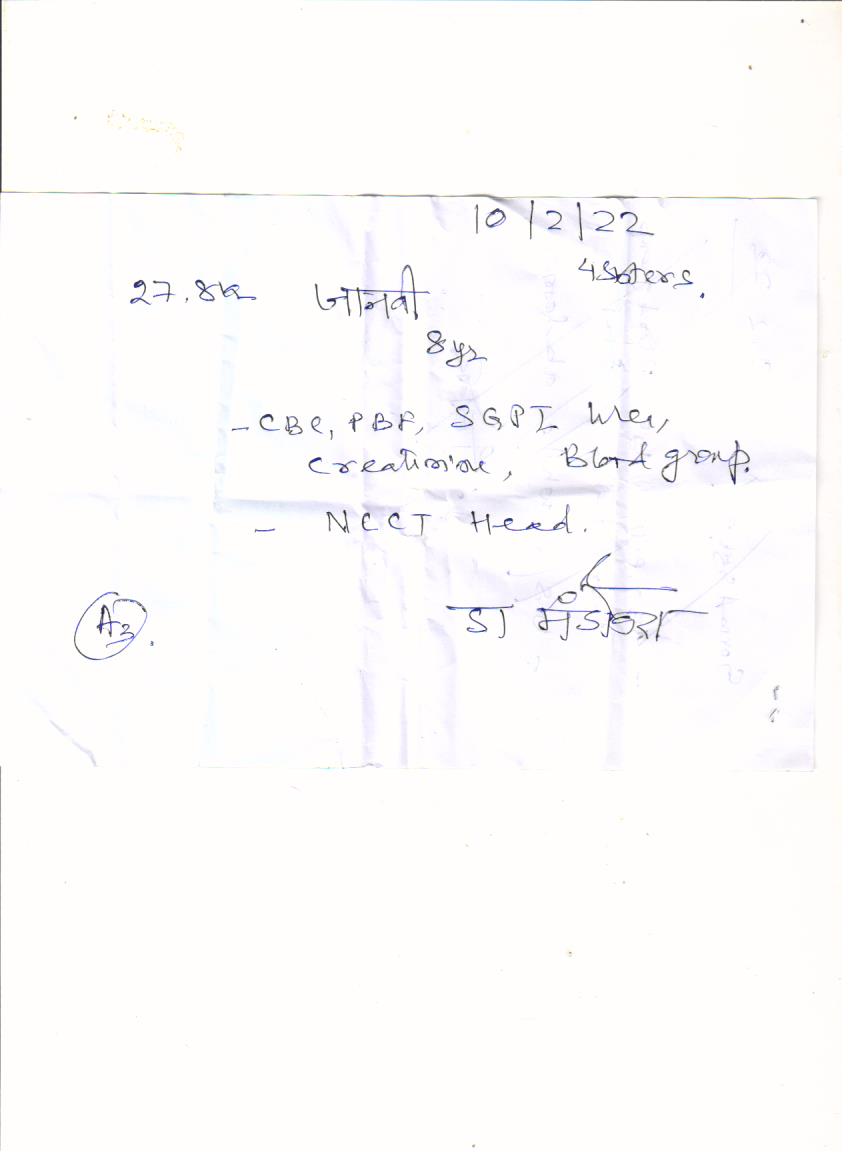 10/2/22
4 sisters.
27.8k जानवी
8 yr
- CBC, PBF, SGPT Urea,
Creatinine, Blood group.
- NCCT Head.
A3.
डा